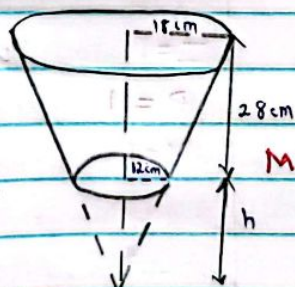 18cm
28cm
12cm
M
h